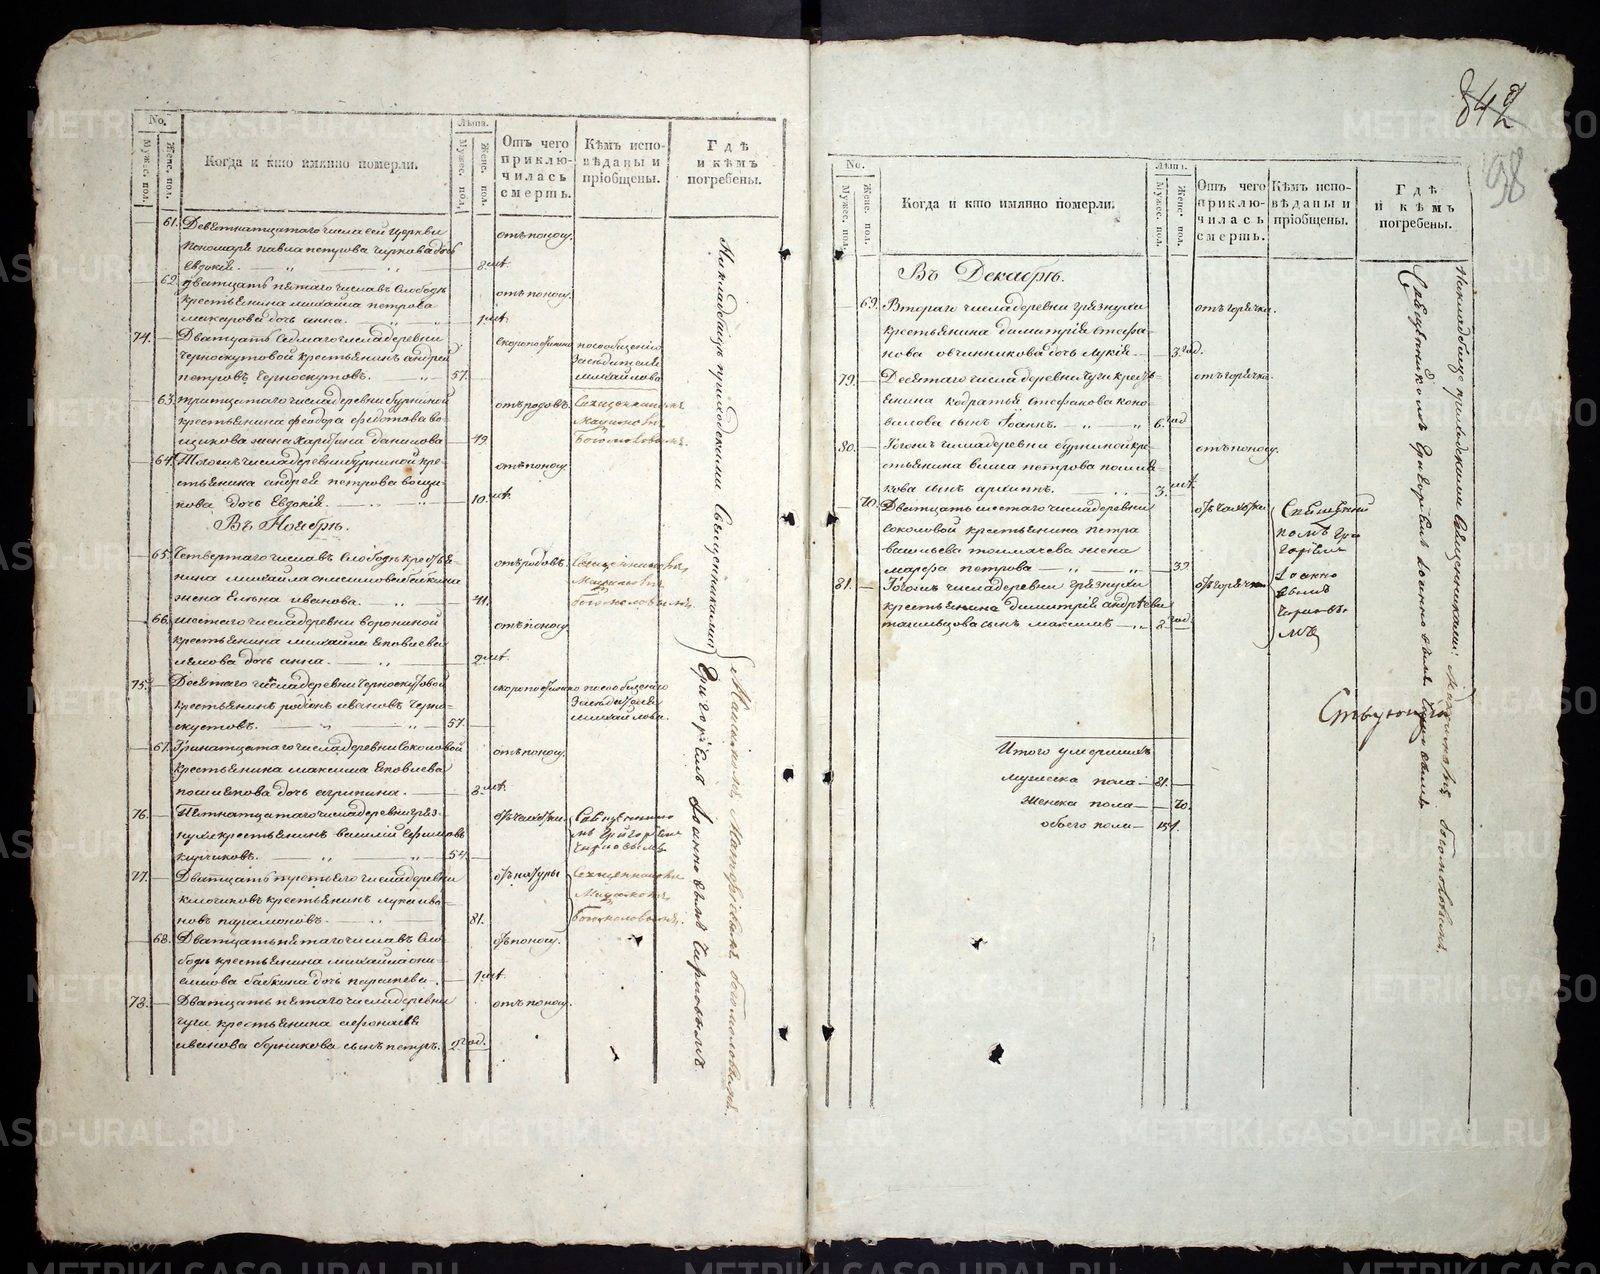 No.
Мужес. пол.
Женс. пол.
Когда и кто имянно померли.
Лѣта.
Мужес. пол.
Женс. пол.
Отъ чего
приклю-
чилась
смерть.
Кѣмъ испо-
вѣданы и
пріобщены.
Гдѣ
и кѣмъ
погребены.
61. Девятнатцатаго числа сей церкви
пономаря павла петрова чиркова дочь
Евдокія.
отъ поносу.
62. Дватцать пятаго числа въ Слободѣ
крестьянина михайла петрова
макарова дочь анна. 1
отъ поносу.
74. Дватцать седмаго числа деревни
Черноскутовой крестьянинъ андрей
петровъ Черноскутовъ. 57.
скоропостижно
по сообщенію
Засѣдателя
михайлова
63. тритцатаго числа деревни бурниной
крестьянина феодора федотова во-
щикова жена Харитина данилова 49.
отъ родовъ.
Священникомъ
Богомоловымъ.
64. Тогожъ числа деревни бурниной кре-
стьянина андрея петрова вощи-
кова дочь Евдокія 10.
отъ поносу.
Въ Ноябрѣ.
65. Четвертаго числа въ Слободѣ крестья-
нина михайла онисимова бабкина
жена Елена иванова. 41.
отъ родовъ.
Священникомъ
Богомоловымъ
66. шестаго числа деревни ворониной
крестьянина михайла Яковлева
дочь анна. 2
отъ поносу
75. Десятаго числа деревни Черноскутовой
крестьянинъ родіонъ ивановъ Черно-
скутовъ. 57.
скоропостижно по сообщенію
Засѣдателя
михайлова.
67. Тринатцатаго числа деревни Соколовой
крестьянина максима Яковлева
дочь агрипина.
отъ поносу.
76. Пятнатцатаго числа деревни гряз-
нухи крестьянинъ василій Ефимовъ
54.
отъ чахотки.
Священнико-
мъ Григоріемъ
Чирковымъ
77. Дватцать третьяго числа деревни
ключиковъ крестьянинъ лука ива-
новъ парамоновъ. 81.
отъ натуры
Священникомъ
Богомоловымъ.
68. Дватцать пятаго числа въ Сло-
бодѣ крестьянина михайла они-
симова бабкина дочь 1
отъ поносу.
78. Дватцать пятаго числа деревни
чуги крестьянина афонасья
иванова сынъ петръ. 2 год.
отъ поносу.
На кладбищѣ приходскими Священниками
Матфіевымъ Богомоловымъ.
Григоріемъ Іоанновымъ Чирковымъ.
842
98
No.
Мужес. пол.
Женс. пол.
Когда и кто имянно померли.
Лѣта.
Мужес. пол.
Женс. пол.
Отъ чего
приклю-
чилась
смерть.
Кѣмъ испо-
вѣданы и
пріобщены.
Гдѣ
и кѣмъ
погребены.
Въ Декабрѣ.
69. Втораго числа деревни грязнухи
крестьянина димитрія стефа-
нова овчинникова дочь лукія 3 год.
отъ горячки.
79. Десятаго числа деревни чуги кресть-
янина кодратья стефанова коно-
валова сынъ Іоаннъ. 6 год
отъ горячки.
80. Тогожъ числа деревни бурниной кре-
стьянина петрова
сынъ архиппъ. 3.
отъ поносу.
70. Дватцать шестаго числа деревни
соколовой крестьянина петра
васильева толмачева жена
марфа петрова 39
отъ чахотки
Священни-
комъ Гри-
горіемъ
Іоанно
вымъ
Чирковы-
мъ
81. Тогожъ числа деревни грязнухи
крестьянина димитрія андреева
сынъ максимъ 2 год.
отъ горячки
На кладбище приходскими Священниками: Богомоловымъ.
Священникомъ Григоріемъ Іоанновымъ Чирковымъ
Итого умершихъ
мужеска пола 81.
Женска пола 70.
обоего пола 151.